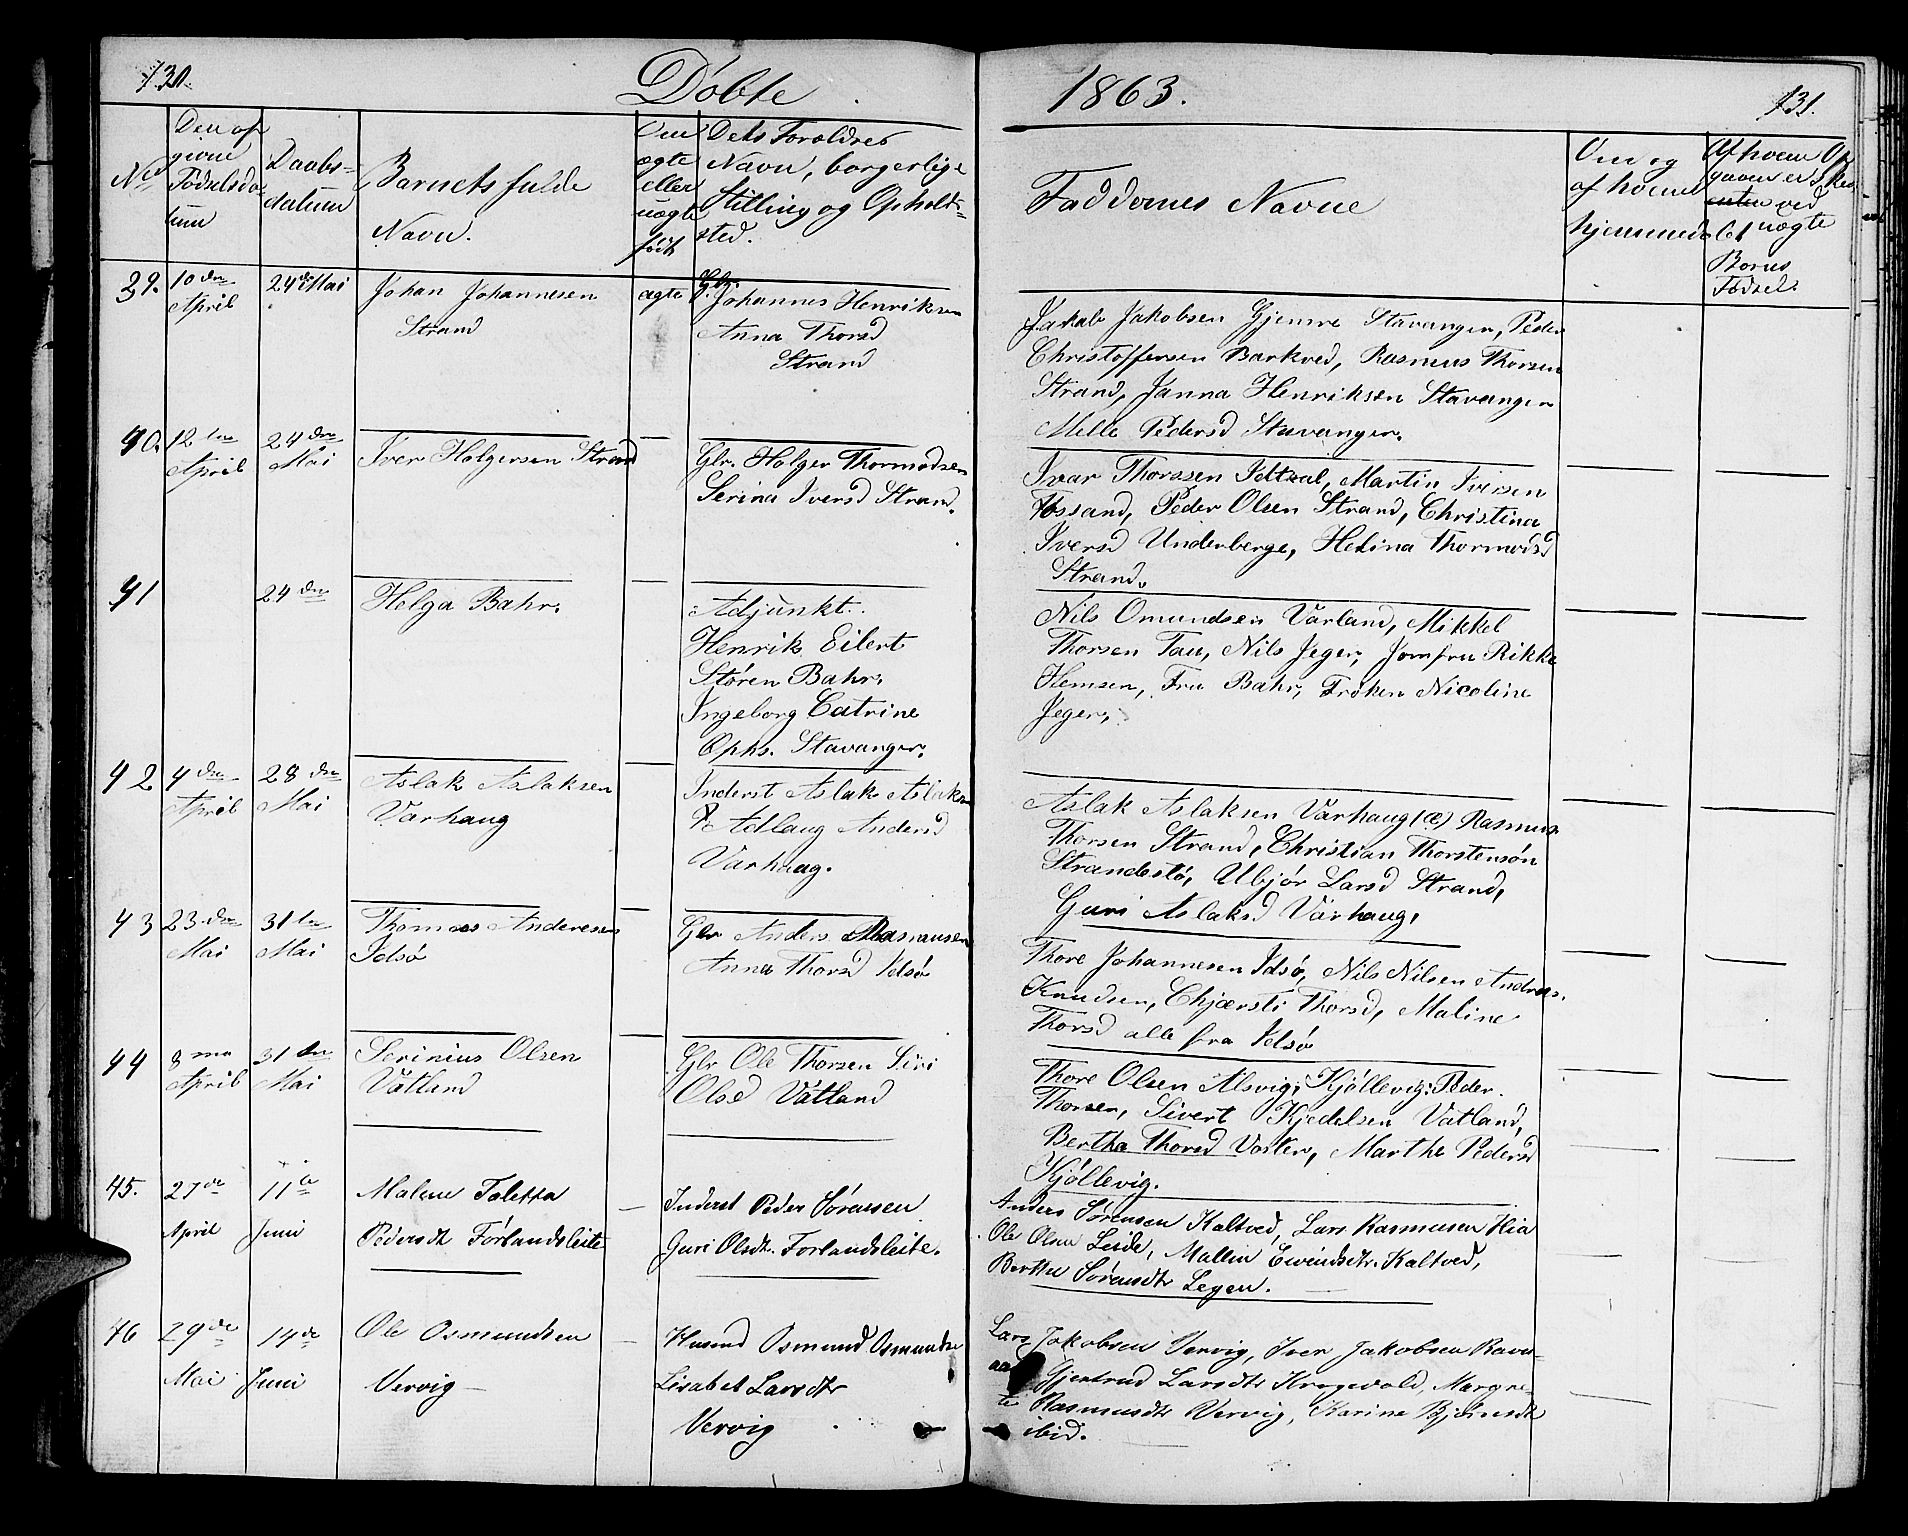 130.
Døbte
1863.
131.
No
Den op
givne
Fødselsda
tum
Daabs-
datum
Barnets fulde
Navn.
Om
ægte
eller
uægte
født
Dets Foreldres
Navn, borgerlige
Stilling og Opholds-
sted.
Faddernes Navne
Om og
af hvem
hjemmedøbt
Af hvem Op
gaven er ske
ved
uægte
Børns
Fødsel.
39. 10de April
24de Mai
Johan Johannesen
Strand
ægte
Gbr. Johannes Henriksen
Anna Thorsd
Strand
Jakob Jakobsen Gjemre Stavanger, Peder
Christoffersen Barkved, Rasmus Thorsen
Strand, Janna Henriksen Stavanger
Melle Pedersd Stavanger.
40. 12te April
24de Mai
Iver Holgersen Strand
Gbr. Holger Thormodsen
Serina Iversd Strand.
Ivar Thorssen Idtzal, Martin Iversen
Fossand, Peder Olsen Strand, Christina
Iversd Underberge, Helina Thormodsd
Strand.
41
24de
Helga Bahr.
Adjunkt.
Henrik Eilert
Støren Bahr.
Ingeborg Catrine
Ophs. Stavanger.
Nils Omundsen Varland, Mikkel
Thorsen Tau, Nils Jeger, Jomfru Rikke
Hemsen, Fru Bahr, Frøken Nicoline
Jeger.
42 4de April
28de Mai
Aslak Aslaksen
Varhaug
Inderst Aslak Aslaksen
& Adlaug Andersd
Varhaug.
Aslak Aslaksen Varhaug (æ) Rasmus
Thorsen Strand, Christian Thorstensøn
Strandestø, Ubjør Larsd Strand,
Guri Aslaksd Varhaug.
43 23de Mai
31te Mai
Thomas Andersen
Idsø
Gbr Anders Rasmusen
Anna Thorsd Idsø
Thore Johannesen Idsø, Nils Nilsen Andreas
Knudsen, Chjærsti Thorsd, Maline
Thorsd alle fra Idsø
44 8ma April
31te Mai
Serinius Olsen
Vatland
Gbr Ole Thorsen Siri
Olsd Vatland
Thore Olsen Alsvig, Kjøllevig: Peder
Thorsen, Sivert Kjedelsen Vatland,
Bertha Thorsd Voster, Marthe Pedersd
Kjøllevig.
45. 27de April
11te Juni
Malene Toletta
Pedersdt Førlandsleite
Inderst Peder Sørensen
Guri Olsdt. Førlandsleite.
Anders Sørensen Kaltved, Lars Rasmusen Hia
Ole Olsen Leide, Mallin Eivindsdtr. Kaltved,
Berthe Sørensdtr Legen.
46 29de Mai
14de Juni
Ole Osmundsen
Vervig
Husmd Osmund Osmundsen
Lisabet Larsdtr
Vervig
Lars Jakobsen Vervig, Iver Jakobsen Ravn-
aas, Gjertrud Larsdtr Krogevold, Margre-
te Rasmusdtr Vervig, Karine Bjørnsdtr
ibid.